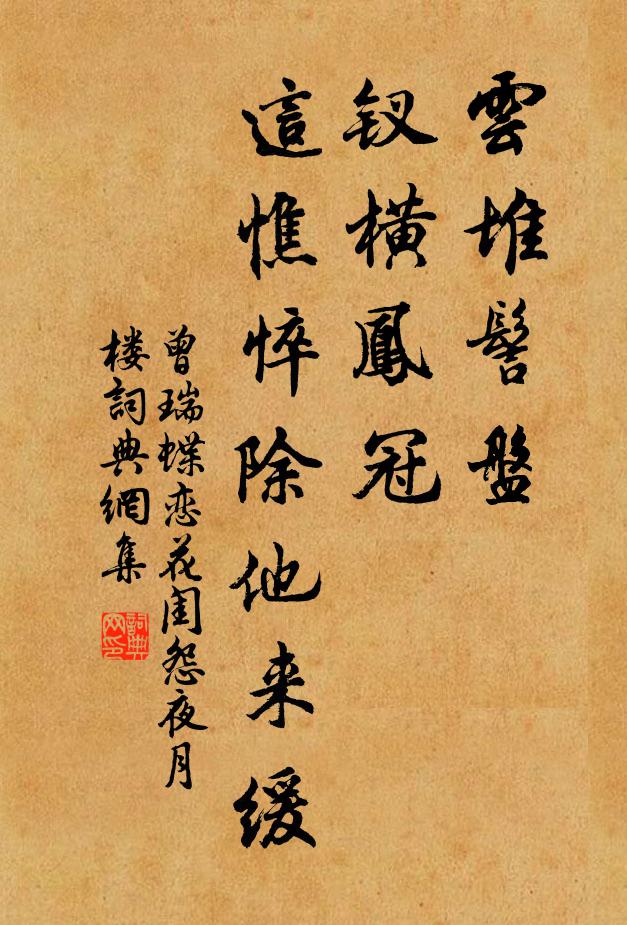 雲堆髻盤
釵橫鳳冠
這憔悴除他来緩
曾瑞蝶恋花闺怨夜月
楼詞典網集
詞典
网印